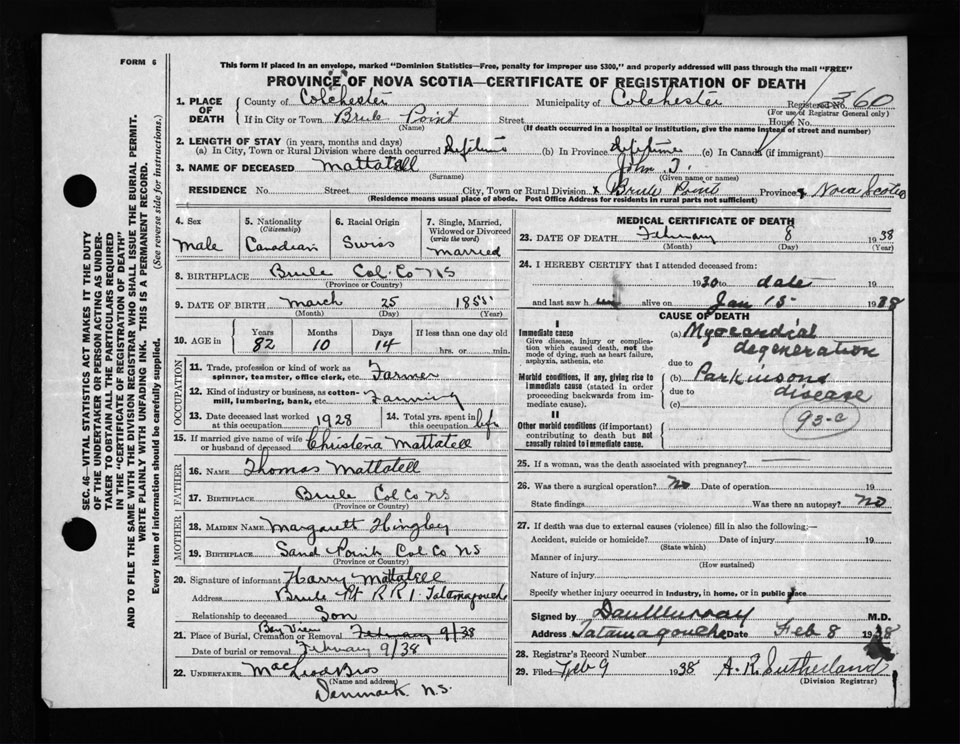 FORM 6
This form if placed in an envelope, marked "Dominion Statistics—Free, penalty for improper use $300," and properly addressed will pass through the mail "FREE"
PROVINCE OF NOVA SCOTIA—CERTIFICATE OF REGISTRATION OF DEATH
1. PLACE OF DEATH County of Colchester Municipality of Colchester Registered No. 360
(For use of Registrar General only)
If in City or Town Brule Point Street House No.
(Name) (If death occurred in a hospital or institution, give the name instead of street and number)
2. LENGTH OF STAY (in years, months and days)
(a) In City, Town or Rural Division where death occurred Lifetime (b) In Province Lifetime (c) In Canada (if immigrant)
3. NAME OF DECEASED Mattatall John T.
(Surname) (Given name or names)
RESIDENCE No. Street City, Town or Rural Division x Brule Point Province Nova Scotia
(Residence means usual place of abode. Post Office Address for residents in rural parts not sufficient)
SEC. 46—VITAL STATISTICS ACT MAKES IT THE DUTY
OF THE UNDERTAKER OR PERSON ACTING AS UNDER-
TAKER TO OBTAIN ALL THE PARTICULARS REQUIRED
IN THE "CERTIFICATE OF REGISTRATION OF DEATH"
AND TO FILE THE SAME WITH THE DIVISION REGISTRAR WHO SHALL ISSUE THE BURIAL PERMIT.
WRITE PLAINLY WITH UNFADING INK. THIS IS A PERMANENT RECORD.
Every item of information should be carefully supplied. (See reverse side for instructions.)
4. Sex
Male
5. Nationality
(Citizenship)
Canadian
6. Racial Origin
Swiss
7. Single, Married,
Widowed or Divorced
(write the word)
Married
8. BIRTHPLACE Brule Col. Co NS
(Province or Country)
9. DATE OF BIRTH March 25 1855
(Month) (Day) (Year)
10. AGE in Years Months Days If less than one day old
82 10 14 hrs. or min.
OCCUPATION
11. Trade, profession or kind of work as
spinner, teamster, office clerk, etc. Farmer
12. Kind of industry or business, as cotton-
mill, lumbering, bank, etc. Farming
13. Date deceased last worked
at this occupation 1928
14. Total yrs. spent in
this occupation life
15. If married give name of wife
or husband of deceased Christena Mattatall
FATHER
16. NAME Thomas Mattatall
17. BIRTHPLACE Brule Col Co NS
(Province or Country)
MOTHER
18. MAIDEN NAME Margarett Hingley
19. BIRTHPLACE Sand Point Col Co NS
(Province or Country)
20. Signature of informant Harry Mattatall
Address Brule Pt RR1 Tatamagouche
Relationship to deceased Son
21. Place of Burial, Cremation or Removal Bay View February 9/38
Date of burial or removal February 9/38
22. UNDERTAKER MacLeod Bros
(Name and address)
Denmark N.S.
MEDICAL CERTIFICATE OF DEATH
23. DATE OF DEATH February 8 1938
(Month) (Day) (Year)
24. I HEREBY CERTIFY that I attended deceased from:
1930 to date 19
and last saw h im alive on Jan 15 1938
CAUSE OF DEATH
I
Immediate cause
Give disease, injury or complica-
tion which caused death, not the
mode of dying, such as heart failure,
asphyxia, asthenia, etc
(a) Myocardial
degeneration
due to
Morbid conditions, if any, giving rise to
immediate cause (stated in order
proceeding backwards from im-
mediate cause).
(b) Parkinsons
disease
due to
(c)
93-c
II
Other morbid conditions (if important)
contributing to death but not
causally related to immediate cause.
25. If a woman, was the death associated with pregnancy?
26. Was there a surgical operation? No Date of operation 19
State findings Was there an autopsy? No
27. If death was due to external causes (violence) fill in also the following:—
Accident, suicide or homicide? Date of injury 19
(State which)
Manner of injury
(How sustained)
Nature of injury
Specify whether injury occurred in Industry, in home, or in public place
Signed by Dan Murray M.D.
Address Tatamagouche Date Feb 8 1938
28. Registrar's Record Number
29. Filed Feb 9 1938 A. R. Sutherland
(Division Registrar)